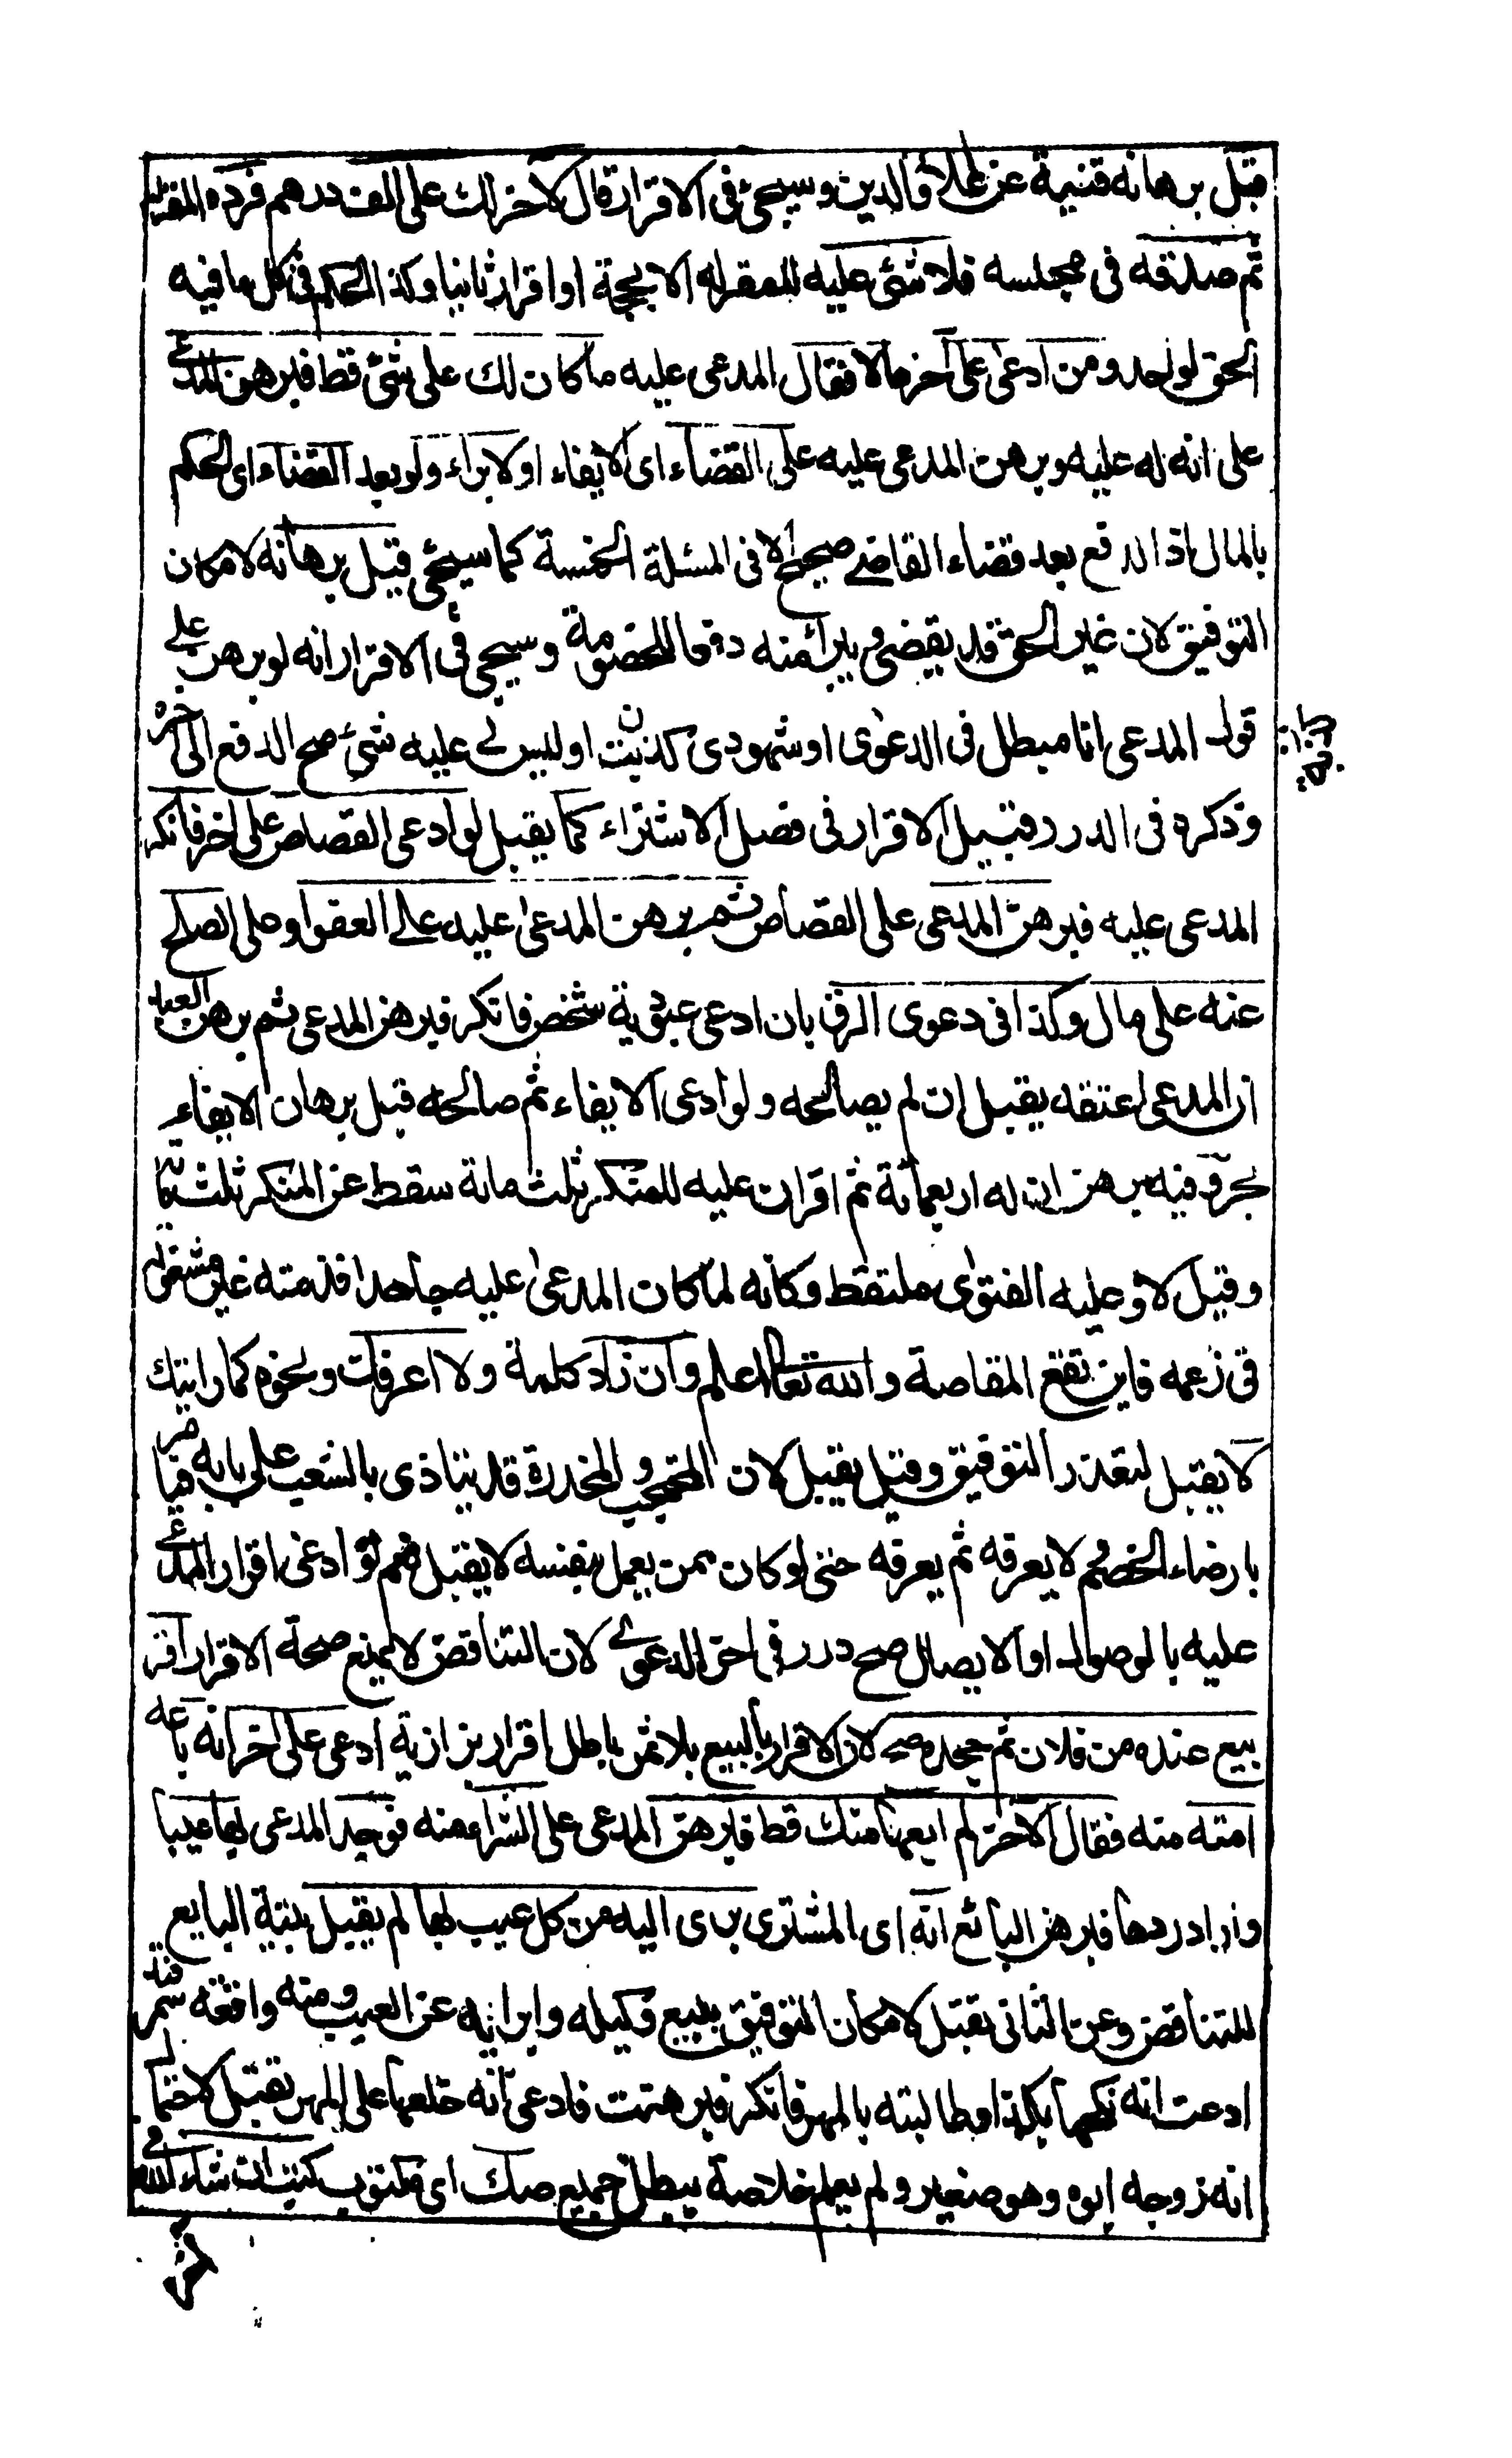 قبل برهانه قنية عن علاء الدين وسيجئ فى الاقرار قال لاخر لك على الف درهم فرده المقر له
ثم صدقه فى مجلسه فلا شئ عليه للمقر له الا بحجة او اقرار ثانيا وكذا الحكم فى كل ما فيه
الحق لواحد ومن ادعى على آخر مالا فقال المدعى عليه ما كان لك على شئ قط فبرهن المدعى
على انه له عليه وبرهن المدعى عليه على القضاء اى الايفاء او لابراء ولو بعد القضاء اى الحكم
بالمال اذ الدفع بعد قضاء القاضے صحيح الا فى المسئلة المخمسة كما سيجئ قبل برهانه لامكان
التوفيق لان غير الحق قد يقضى ويبرأ منه دفعا للخصومة وسيجى فى الاقرار انه لو برهن على
قول المدعى انا مبطل فى الدعوى او شهودى كذبت او ليس لے عليه شئ صح الدفع الى آخره
وذكره فى الدرر قبيل الاقرار فى فصل الاشتراء كما يقبل لو ادعى القصاص على اخر فانكر
المدعى عليه فبرهن المدعى على القصاص ثم برهن المدعى عليه علے العفو او على الصلح
عنه على مال وكذا فى دعوى الرق بان ادعى عبودية شخص فانكر فبرهن المدعى ثم برهن العبد
ان المدعى اعتقه يقبل ان لم يصالحه ولو ادعى الايفاء ثم صالحه قبل برهان الايفاء
بحر وفيه برهن ان له اربعمائة ثم اقر ان عليه للمنكر ثلث مائة سقط عن المنكر ثلث مائة
وقيل لا وعليه الفتوى ملتقط وكانه لما كان المدعى عليه جاحدا فذمته غير مشغولة
فى زعمه فاين تقع المقاصة والله تعالى اعلم وان زاد كلمة ولا اعرفك ونحوه كما رايتك
لا يقبل لتعذر التوفيق وقيل يقبل لان المحتجب والمخدرة قد يتاذى بالشغب على بابه فيامر
بارضاء الخصم لا يعرفه ثم يعرفه حتى لو كان ممن يعمل بنفسه لا يقبل نعم لو ادعى اقرار المدعى
عليه بالوصول او الايصال صح درر فى اخر الدعوى لان التناقض لا يمنع صحة الاقرار اقر
ببيع عنده من فلان ثم جحده صح لان الاقرار بالبيع بلا ثمن باطل اقرار بزازية ادعى على اخر انه باعه
امته منه فقال الاخر لم ابعها منك قط فبرهن المدعى على الشراء منه فوجد المدعى بها عيبا
واراد ردها فبرهن البائع انه اى المشترى برى اليه من كل عيب بها لم يقبل بينة البايع
للتناقض وعن الثانى تقبل لامكان التوفيق ببيع وكيله وابرائه عن العيب ومنه واقعة سمرقند
ادعت انه نكحها بكذا وطالبته بالمهر فانكر فبرهنت فادعى انه خلعها على المهر تقبل لاحتمال
انه زوجه ابوه وهو صغير ولم يعلم خلاصة يبطل جميع صك اى مكتوب كتب ان شاء الله فى